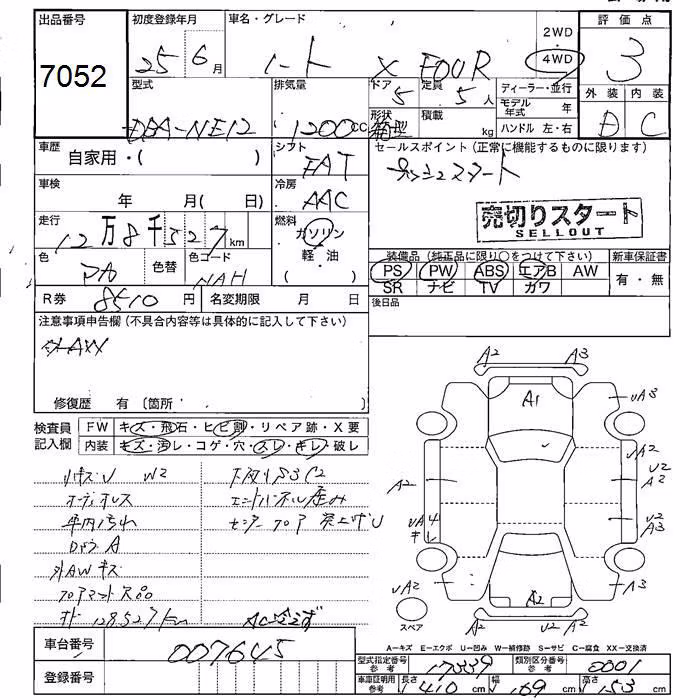 出品番号
7052
初度登録年月
25 6月
車名・グレード
ノート X FOUR
2WD
4WD
評価点
3
外装 内装
D C
型式
DBA-NE12
排気量
1200cc
ドア
5
定員
5人
形状
箱型
積載
kg
ディーラー・並行
モデル年式 年
ハンドル 左・右
車歴
自家用・( )
シフト
FAT
セールスポイント (正常に機能するものに限ります)
プッシュスタート
車検
年 月( 日)
冷房
AAC
売切りスタート
SELLOUT
走行
12万8千527km
燃料
ガソリン
軽・油
( )
色
色替
色コード
NAH
装備品 (純正品に限り○をつけて下さい)
PS PW ABS エアB AW
SR ナビ TV カワ
新車保証書
有・無
R券 8510円
名変期限 月 日
後日品
注意事項申告欄 (不具合内容等は具体的に記入して下さい)
社外AW
修復歴 有 〔箇所 .〕
検査員
記入欄
FW キズ・飛石・ヒビ割・リペア跡・X要
内装 キズ・汚レ・コゲ・穴・スレ・キレ・破レ
リキズU W2
オーディオレス
車内汚れ
DドラA
外AWキズ
フロアマット欠品
メーター 128,527km
下廻りS3C2
エンドパネル歪み
センターフロア突上げU
AC冷えず
A2 A3
A1
A3
A2
U2
A2
A2
UA4
キレ
U2
A3
UA2
A3
A2
A2 U2 A2
スペア
A-キズ E-エクボ U-凹み W-補修跡 S-サビ C-腐食 XX-交換済
車台番号
007645
登録番号
型式指定番号
参考
17339
類別区分番号
参考
0001
車庫証明用
参考
長さ
410cm
幅
169cm
高さ
153cm